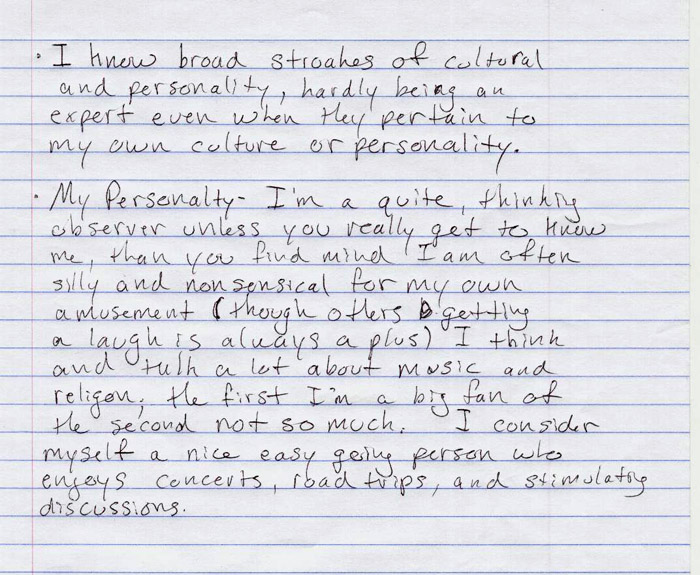 · I know broad stroakes of cultural
and personality, hardly being an
expert even when they pertain to
my own culture or personality.
· My Personalty- I'm a quite, thinking
observer unless you really get to know
me, than you find mind I am often
silly and nonsensical for my own
amusement (though others getting
a laugh is always a plus) I think
and talk a lot about music and
religon; the first I'm a big fan of
the second not so much. I consider
myself a nice easy going person who
enjoys concerts, road trips, and stimulating
discussions.